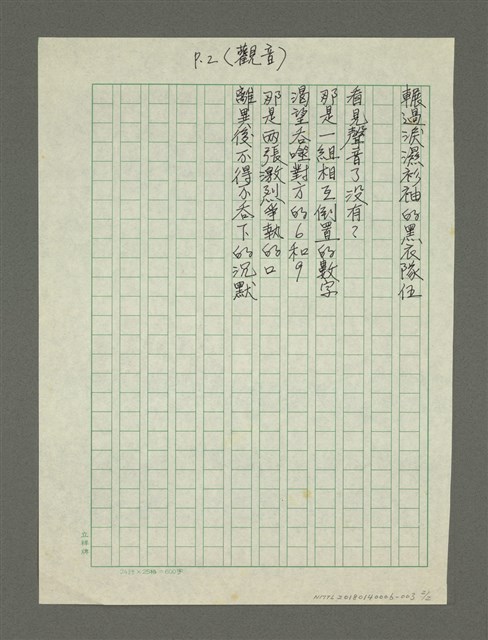 P.2(觀音)
輾過淚濕衫袖的黑衣隊伍
看見聲音了沒有？
那是一組相互倒置的數字
渴望吞噬對方的6和9
那是兩張激烈爭執的口
離異後不得不吞下的沉默
24行×25格=600字
NMTL20180140006-003 2/2